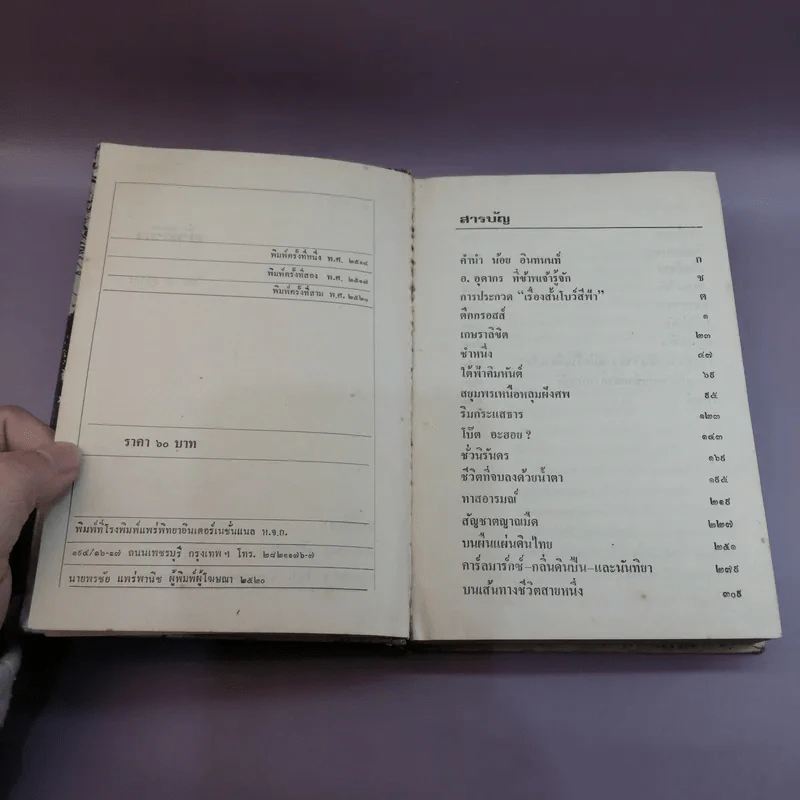 พิมพ์ครั้งที่หนึ่ง พ.ศ. ๒๕๑๔
พิมพ์ครั้งที่สอง พ.ศ. ๒๕๑๘
พิมพ์ครั้งที่สาม พ.ศ. ๒๕๒๐
ราคา ๖๐ บาท
พิมพ์ที่โรงพิมพ์แพร่พิทยาอินเตอร์เนชั่นแนล ห.จ.ก.
๑๙๔/๑๖-๑๗ ถนนเพชรบุรี กรุงเทพ ฯ โทร. ๒๘๒๑๗๖-๗
นายพรชัย แพร่พานิช ผู้พิมพ์ผู้โฆษณา ๒๕๒๐
สารบัญ
คำนำ น้อย อินทนนท์ ก
อ. อุดากร ที่ข้าพเจ้ารู้จัก ช
การประกวด "เรื่องสั้นโบว์สีฟ้า" ต
ตึกกรอสส์ ๑
เกษราลิขิต ๒๓
ชำหนึ่ง ๔๗
ใต้ฟ้าคิมหันต์ ๖๙
สยุมพรเหนือหลุมฝังศพ ๙๕
ริมกระแสธาร ๑๒๓
โบ๊ต อะฮอย ? ๑๔๓
ชั่วนิรันดร ๑๖๙
ชีวิตที่จบลงด้วยน้ำตา ๑๙๕
ทาสอารมณ์ ๒๑๙
สัญชาตญาณมืด ๒๒๗
บนผืนแผ่นดินไทย ๒๕๑
คาร์ลมาร์กซ์-กลิ่นดินปืน-และนันทิยา ๒๗๙
บนเส้นทางชีวิตสายหนึ่ง ๓๐๕